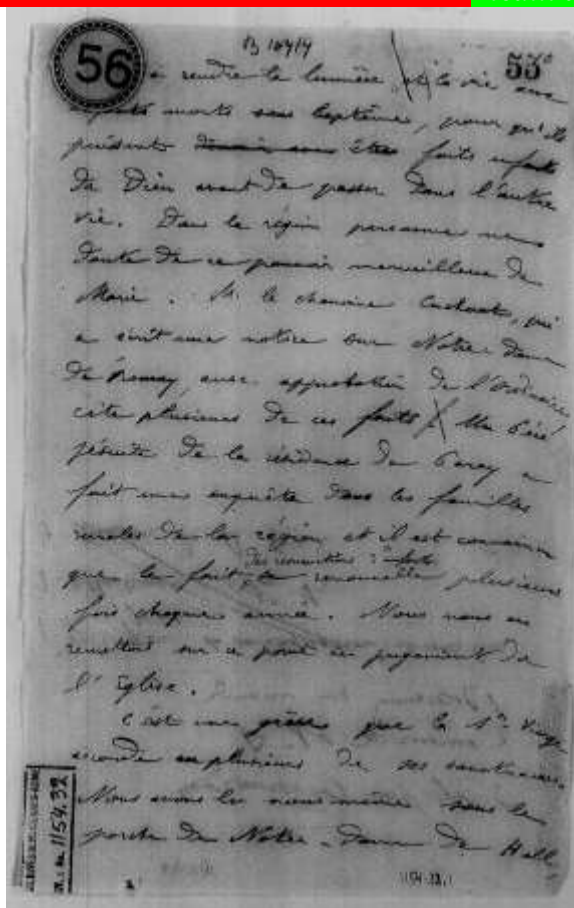 B 109/9
56
55°
à rendre la lumière et la vie aux
enfants morts sans baptême, pour qu'ils
puissent être faits enfants
de Dieu avant de passer dans l'autre
vie. Dans la région personne ne
doute de ce pouvoir merveilleux de
Marie. M. le chanoine, qui
a écrit une notice sur Notre-Dame
de Romay, avec approbation de l'Ordinaire,
cite plusieurs de ces faits. Un Père
jésuite de la résidence de Paray a
fait une enquête dans les familles
rurales de la région et il est convaincu
des résurrections
que le fait se renouvelle plusieurs
fois chaque année. Nous nous en
remettons sur ce point au jugement de
l'Eglise.
C'est une grâce que la Ste Vierge
accorde en plusieurs de ses sanctuaires.
Nous avons lu nous-même sous le
porche de Notre-Dame de Hall
1154.32
1154.32.1